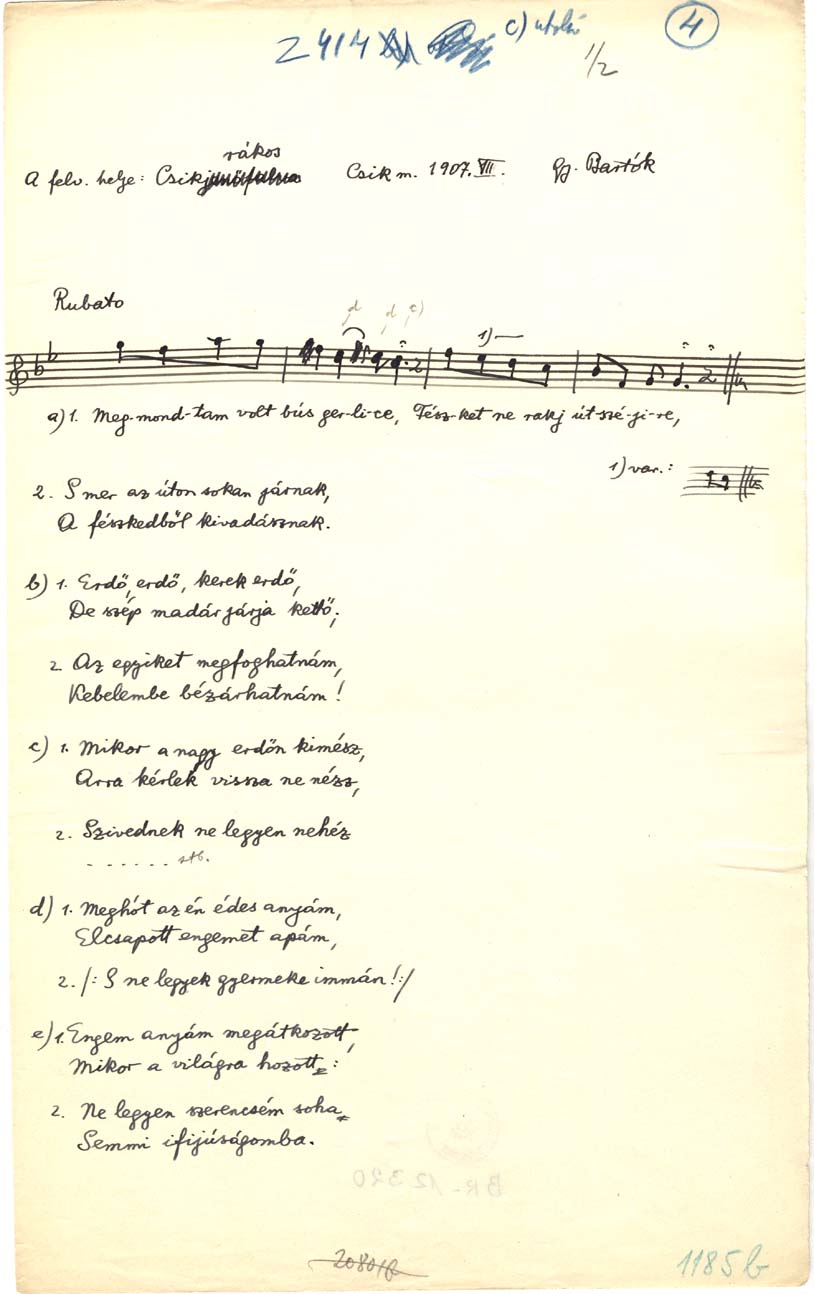 c) utolsó
4
1/2
rákos
A felv. helye: Csik Csik m. 1907. VII. Gy. Bartók
Rubato
d d e)
1)
a) 1. Meg-mond-tam volt bús ger-li-ce, Fész-ket ne rakj út-szé-ji-re,
1) var.:
2. S mer az úton sokan járnak,
A fészkedből kivadásznak.
b) 1. Erdő, erdő, kerek erdő,
De szép madár járja kettő;
2 Az egyiket megfoghatnám,
Kebelembe bézárhatnám!
c) 1. Mikor a nagy erdőn kimész,
Arra kérlek vissza ne nézz,
2. Szivednek ne legyen nehéz
. . . . . . stb.
d) 1. Meghót az én édes anyám,
Elcsapott engemet apám,
2. /: S ne legyek gyermeke immán! :/
e) 1. Engem anyám megátkozott,
Mikor a világra hozott :
2. Ne legyen szerencsém soha
Semmi ifijúságomba.
BR-12320
1185b